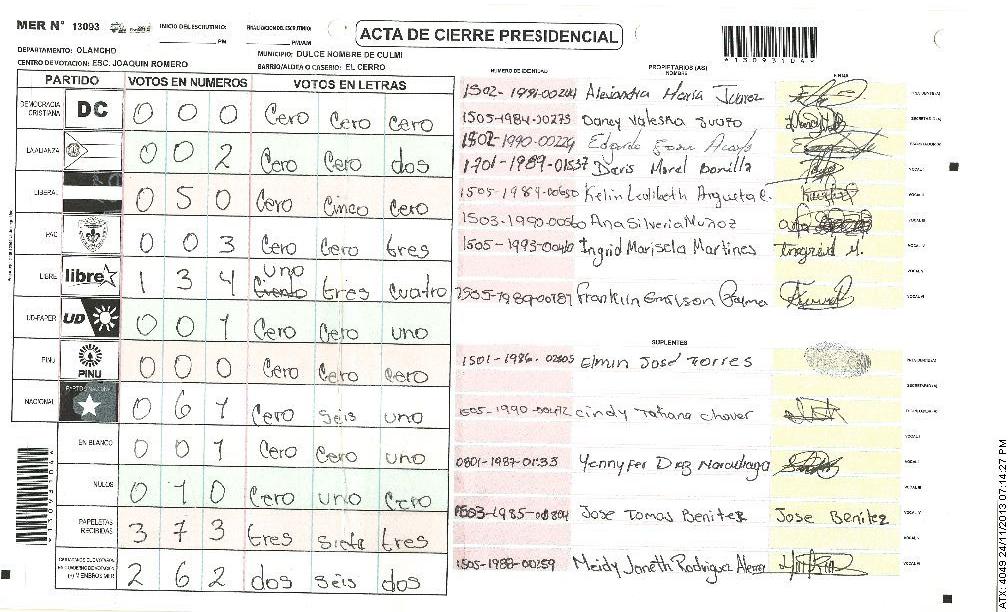 MER N° 13093 INICIO DEL ESCRUTINIO: FINALIZACION DEL ESCRUTINIO:
PM PM/AM
ACTA DE CIERRE PRESIDENCIAL
*13093104*
DEPARTAMENTO: OLANCHO MUNICIPIO: DULCE NOMBRE DE CULMI
CENTRO DE VOTACION: ESC. JOAQUIN ROMERO BARRIO/ALDEA O CASERIO: EL CERRO
PARTIDO VOTOS EN NUMEROS VOTOS EN LETRAS
DEMOCRACIA CRISTIANA DC 0 0 0 Cero Cero cero
LA ALIANZA 0 0 2 Cero Cero dos
LIBERAL 0 5 0 Cero Cinco Cero
PAC 0 0 3 Cero Cero tres
LIBRE libre 1 3 4 uno Ciento tres cuatro
UD-FAPER UD 0 0 1 Cero Cero uno
PINU PINU 0 0 0 Cero Cero cero
NACIONAL PARTIDO NACIONAL 0 6 1 Cero seis uno
EN BLANCO 0 0 1 Cero Cero uno
NULOS 0 1 0 Cero uno Cero
PAPELETAS RECIBIDAS 3 7 3 tres siete tres
(+) MIEMBROS MER 2 6 2 dos seis dos
NUMERO DE IDENTIDAD PROPIETARIOS (AS) NOMBRE FIRMA
Alejandra Maria Juarez PRESIDENTE (A)
1505-1984-00275 Dancy Valeska SECRETARIO (A)
1502-1990-00224 Edgardo ESCRUTADOR (A)
1701-1989-01537 Daris Morel Bonilla VOCAL I
1505-1989-00650 Kelin VOCAL II
1503-1990-00560 Ana Silveria Muñoz VOCAL III
1505-1993-00460 Ingrid Marisela Martines Ingrid M. VOCAL IV
VOCAL V
1505-1989-00187 Franklin VOCAL VI
SUPLENTES
1501-1986-02605 Elmin José Torres PRESIDENTE (A)
SECRETARIO (A)
1505-1990-00412 Cindy Tatiana Chaver ESCRUTADOR (A)
VOCAL I
0801-1987-01133 Yennyfer Diaz VOCAL II
VOCAL III
1503-1985-00804 Jose Tomas Benitez Jose Benitez VOCAL IV
VOCAL V
1505-1988-00259 Meidy Janeth Rodriguez VOCAL VI
*13093104*
ATX: 4049 24/11/2013 07:14:27 PM